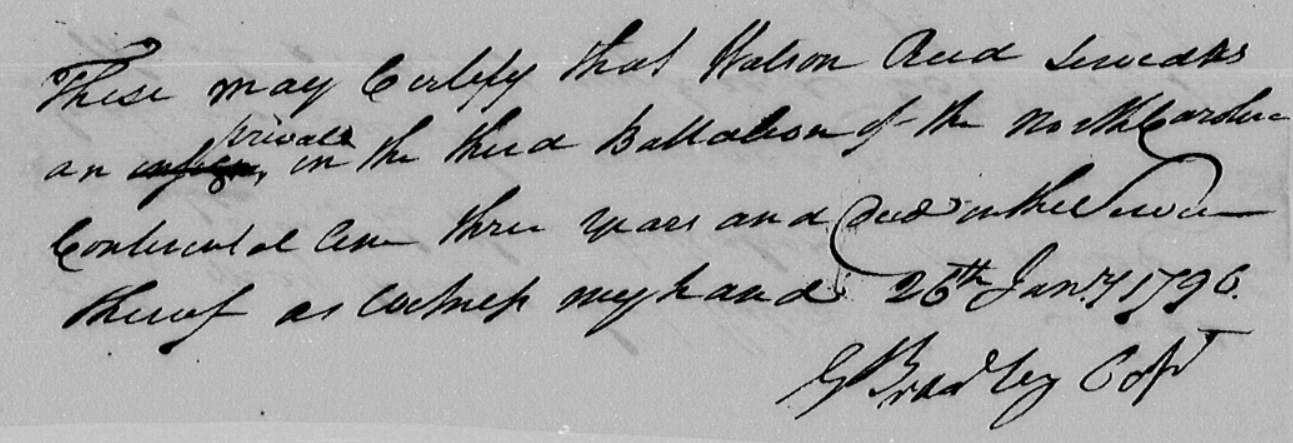 These may Certify that Watson Reed serv'd as
private
an ensign, in the third Battalion of the North Carolina
Continental Line three years and died in the Service
thereof as witness my hand 26th Jany 1796.
G Bradley Capt